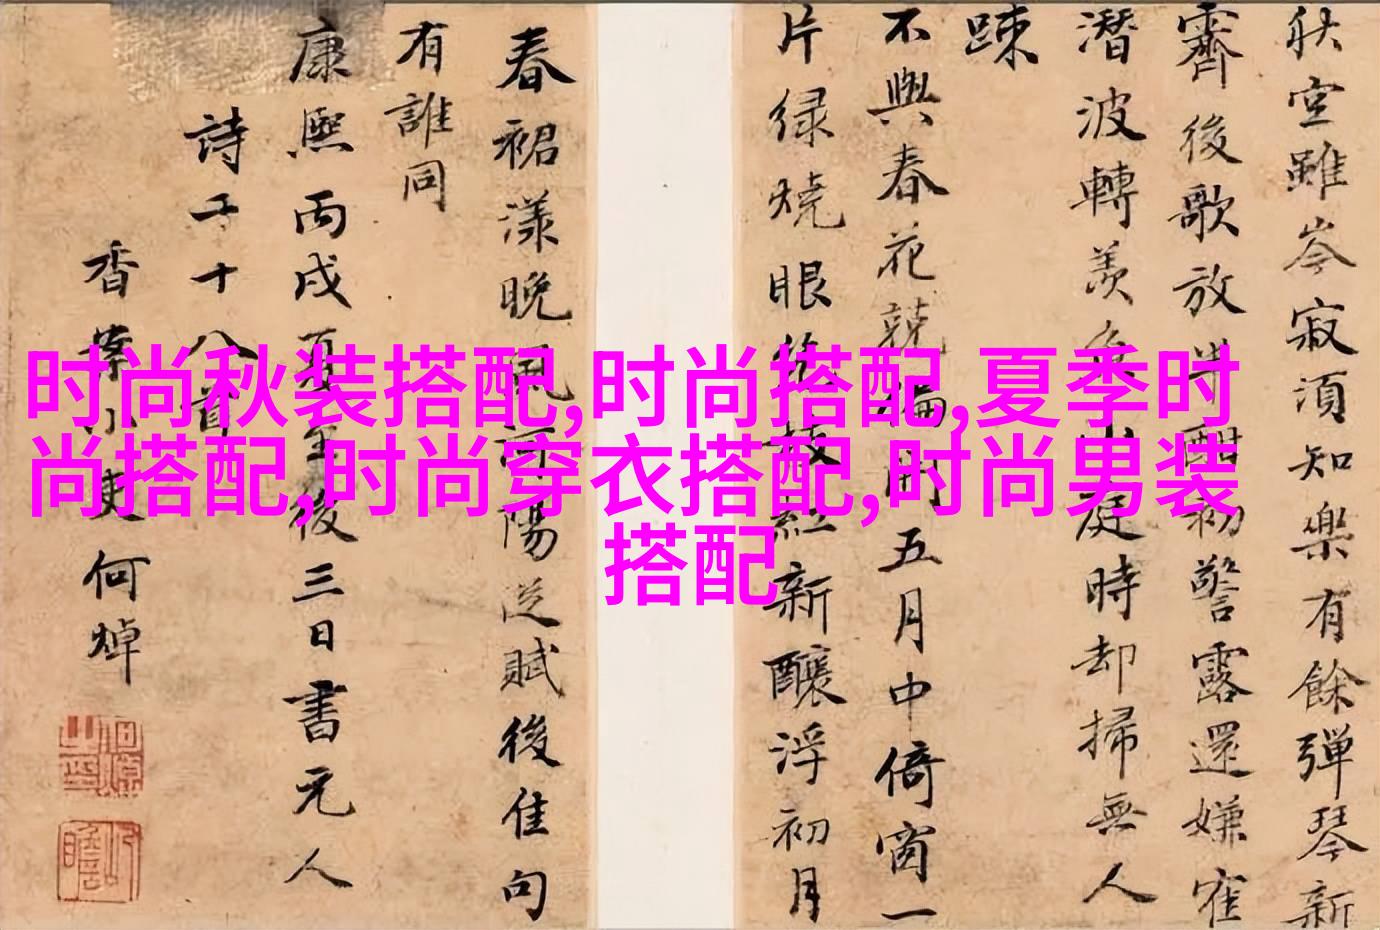 时尚秋装搭配,时尚搭配,夏季时
尚搭配,时尚穿衣搭配,时尚男装
搭配
秋空雖岑寂須知樂有餘彈琴新
霽後歌放酣初警露還嫌窄
潛波轉羨魚山庭時却掃無人
踈
不與春花競開五月中倚窗一
片緑燒眼後枝紅新釀浮初月
春裙漾晚風河陽從賦後佳句
有誰同
康熙丙戌夏至後三日書元人
詩二十八首
香案小吏何焯